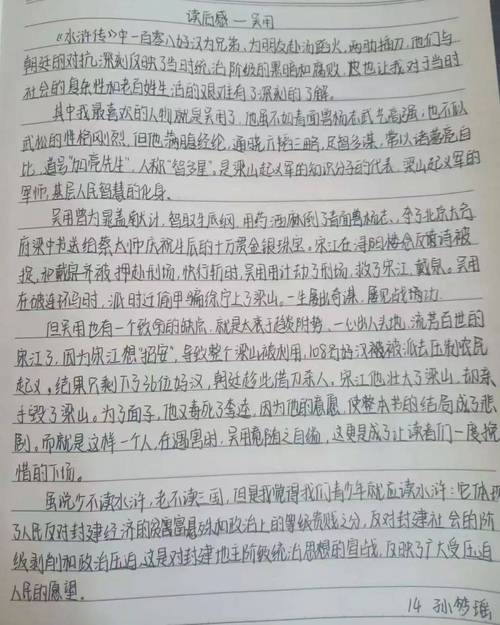 读后感—吴用
《水浒传》中一百零八好汉为兄弟,为朋友赴汤蹈火,两肋插刀,他们与
朝廷的对抗,深刻反映了当时统治阶级的黑暗和腐败,也让我对于当时
社会的复杂性和老百姓生活的艰难有了深刻的了解。
其中我最喜欢的人物就是吴用了,他虽不如青面兽杨志武艺高强,也不似
武松的性格刚烈,但他满腹经纶,通晓六韬三略,足智多谋,常以诸葛亮自
比,道号"加亮先生",人称"智多星",是梁山起义军的知识分子的代表,梁山起义军的
军师,基层人民智慧的化身。
吴用曾为晁盖献计,智取生辰纲,用药酒麻倒了青面兽杨志,夺了北京大名
府梁中书送给蔡太师庆祝生辰的十万贯金银珠宝。宋江在浔阳楼念反诗被
捉,和戴宗并被押赴刑场,快行斩时,吴用用计劫了刑场,救了宋江,戴宗。吴用
在破连环马时,派时迁偷甲骗徐宁上了梁山。一生屡出奇谋,屡见战功。
但吴用也有一个致命的缺点,就是太衷于趋附势,一心出人头地,流芳百世的
宋江了,因为宋江想"招安",导致整个梁山被利用,108好汉被派去压制农民
起义。结果只剩下了36位好汉,朝廷趁此借刀杀人。宋江他壮大了梁山,却亲
手毁了梁山。为了面子,他又毒死了李逵,因为他的意愿,使整本书的结局成了悲
剧。而就是这样一个人,在遇害时,吴用竟随之自缢,这更是成了让读者们一度惋
惜的下场。
虽说少不读水浒,老不读三国,但是我觉得我们青少年就应读水浒:它体现
了人民反对封建经济的贫富悬殊和政治上的等级贵贱之分,反对封建社会的阶
级剥削和政治压迫,这是对封建地主阶级统治思想的宣战,反映了广大受压迫
人民的愿望。
14 孙梦瑶